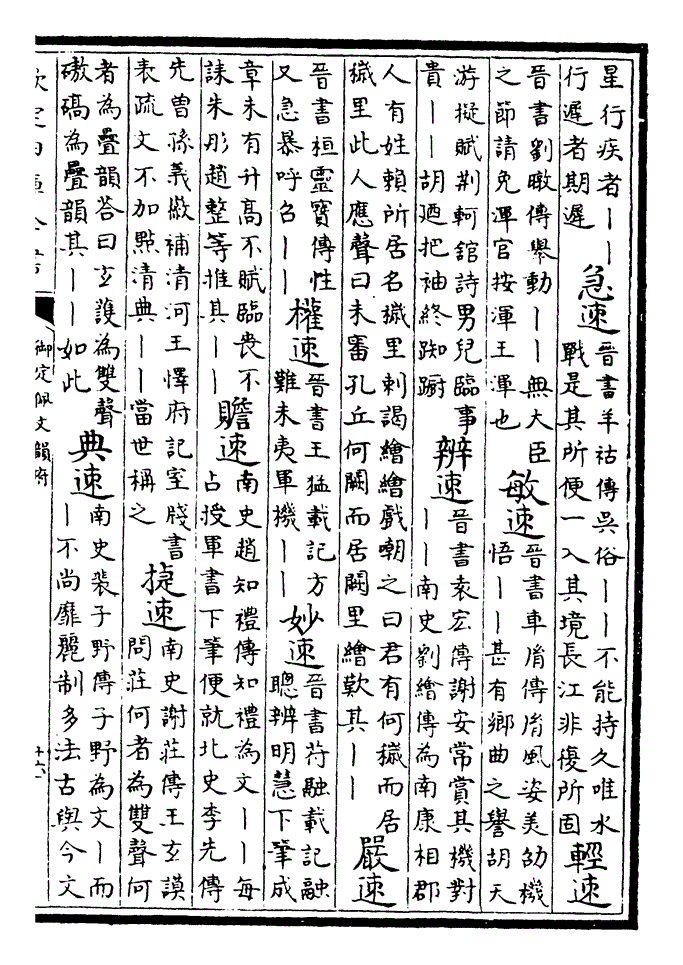 星行疾者丨丨
行遲者期遲
急速
晉書羊祜傳吳俗丨丨不能持久唯水
戰是其所便一入其境長江非復所固
輕速
晉書劉暾傳舉動丨丨無大臣
之節請免渾官按渾王渾也
敏速
晉書車胤傳胤風姿美劭機
悟丨丨甚有鄉曲之譽胡天
游擬賦荆軻舘詩男兒臨事
貴丨丨胡廼把袖終踟蹰
辨速
晉書袁宏傳謝安常賞其機對
丨丨南史劉繪傳為南康相郡
人有姓賴所居名穢里刺謁繪繪戲嘲之曰君有何穢而居
穢里此人應聲曰未審孔丘何闕而居闕里繪歎其丨丨
嚴速
晉書桓靈寶傳性
又急暴呼召丨丨
權速
晉書王猛載記方
難未夷軍機丨丨
妙速
晉書苻融載記融
聰辨明慧下筆成
章未有升高不賦臨喪不
誄朱彤趙整等推其丨丨
贍速
南史趙知禮傳知禮為文丨丨每
占授軍書下筆便就北史李先傳
先曽孫義徽補清河王懌府記室牋書
表疏文不加點清典丨丨當世稱之
捷速
南史謝莊傳王玄謨
問莊何者為雙聲何
者為疊韻荅曰玄護為雙聲
磝碻為疊韻其丨丨如此
典速
南史裴子野傳子野為文丨而
丨不尚靡麗制多法古與今文
欽定四庫全書
御定佩文韻府
十六